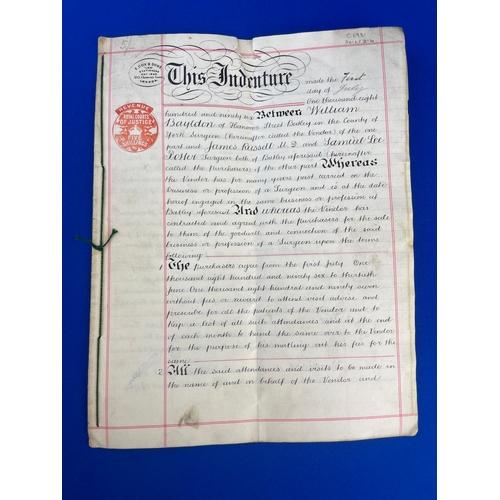 5/-
E. COX & SONS
LAW
STATIONERS
REVENUE
ROYAL COURTS
OF JUSTICE
FIVE
SHILLINGS
This Indenture made the First
day of July
One thousand eight
hundred and ninety six Between William
Bayldon of Hanover Street Batley in the County of
York Surgeon (hereinafter called the Vendor) of the one
part and James Russell M.D. and Samuel Lee
Foster Surgeon both of Batley aforesaid (hereinafter
called the Purchasers) of the other part Whereas
the Vendor has for many years past carried on the
business or profession of a Surgeon and is at the date
hereof engaged in the same business or profession at
Batley aforesaid And whereas the Vendor has
contracted and agreed with the purchasers for the sale
to them of the goodwill and connection of the said
business or profession of a Surgeon upon the terms
following:
1 The purchasers agree from the first July One
thousand eight hundred and ninety six to thirtieth
June One thousand eight hundred and ninety seven
without fees or reward to attend visit advise and
prescribe for all the patients of the Vendor and to
keep a list of all such attendances and at the end
of each month to hand the same over to the Vendor
for the purpose of his making out his fees for the
same
2 All the said attendances and visits to be made in
the name of and on behalf of the Vendor and